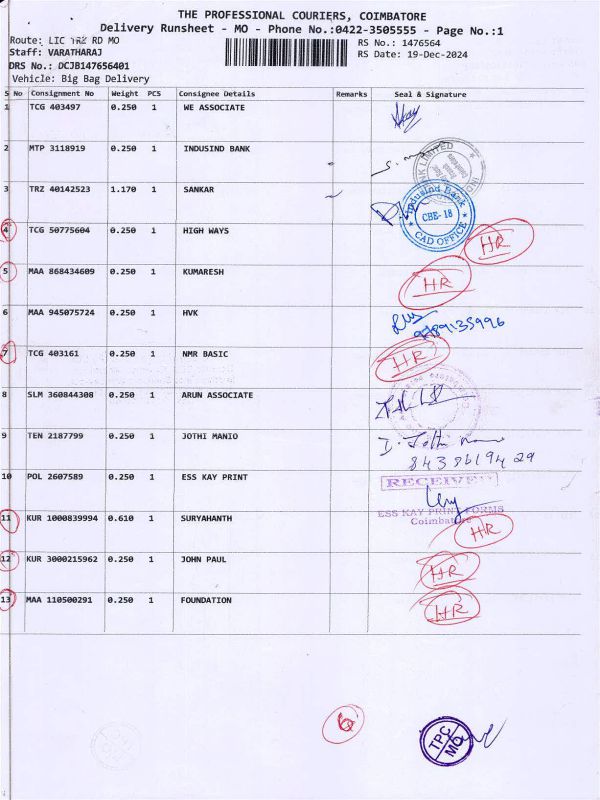 THE PROFESSIONAL COURIERS, COIMBATORE
Delivery Runsheet - MO - Phone No.:0422-3505555 - Page No.:1
Route: LIC TRZ RD MO
RS No.: 1476564
Staff: VARATHARAJ
RS Date: 19-Dec-2024
DRS No.: DCJB147656401
Vehicle: Big Bag Delivery
S No Consignment No Weight PCS Consignee Details Remarks Seal & Signature
1 TCG 403497 0.250 1 WE ASSOCIATE
2 MTP 3118919 0.250 1 INDUSIND BANK
3 TRZ 40142523 1.170 1 SANKAR
IndusInd Bank
CBE-18
CAD OFFICE
4 TCG 50775604 0.250 1 HIGH WAYS HR
5 MAA 868434609 0.250 1 KUMARESH HR
6 MAA 945075724 0.250 1 HVK
7 TCG 403161 0.250 1 NMR BASIC HR
8 SLM 360844308 0.250 1 ARUN ASSOCIATE
9 TEN 2187799 0.250 1 JOTHI MANIO
8438619429
10 POL 2607589 0.250 1 ESS KAY PRINT RECEIVED
ESS KAY PRINT FORMS
Coimbatore
11 KUR 1000839994 0.610 1 SURYAHANTH HR
12 KUR 3000215962 0.250 1 JOHN PAUL HR
13 MAA 110500291 0.250 1 FOUNDATION HR
6
TPC
MO